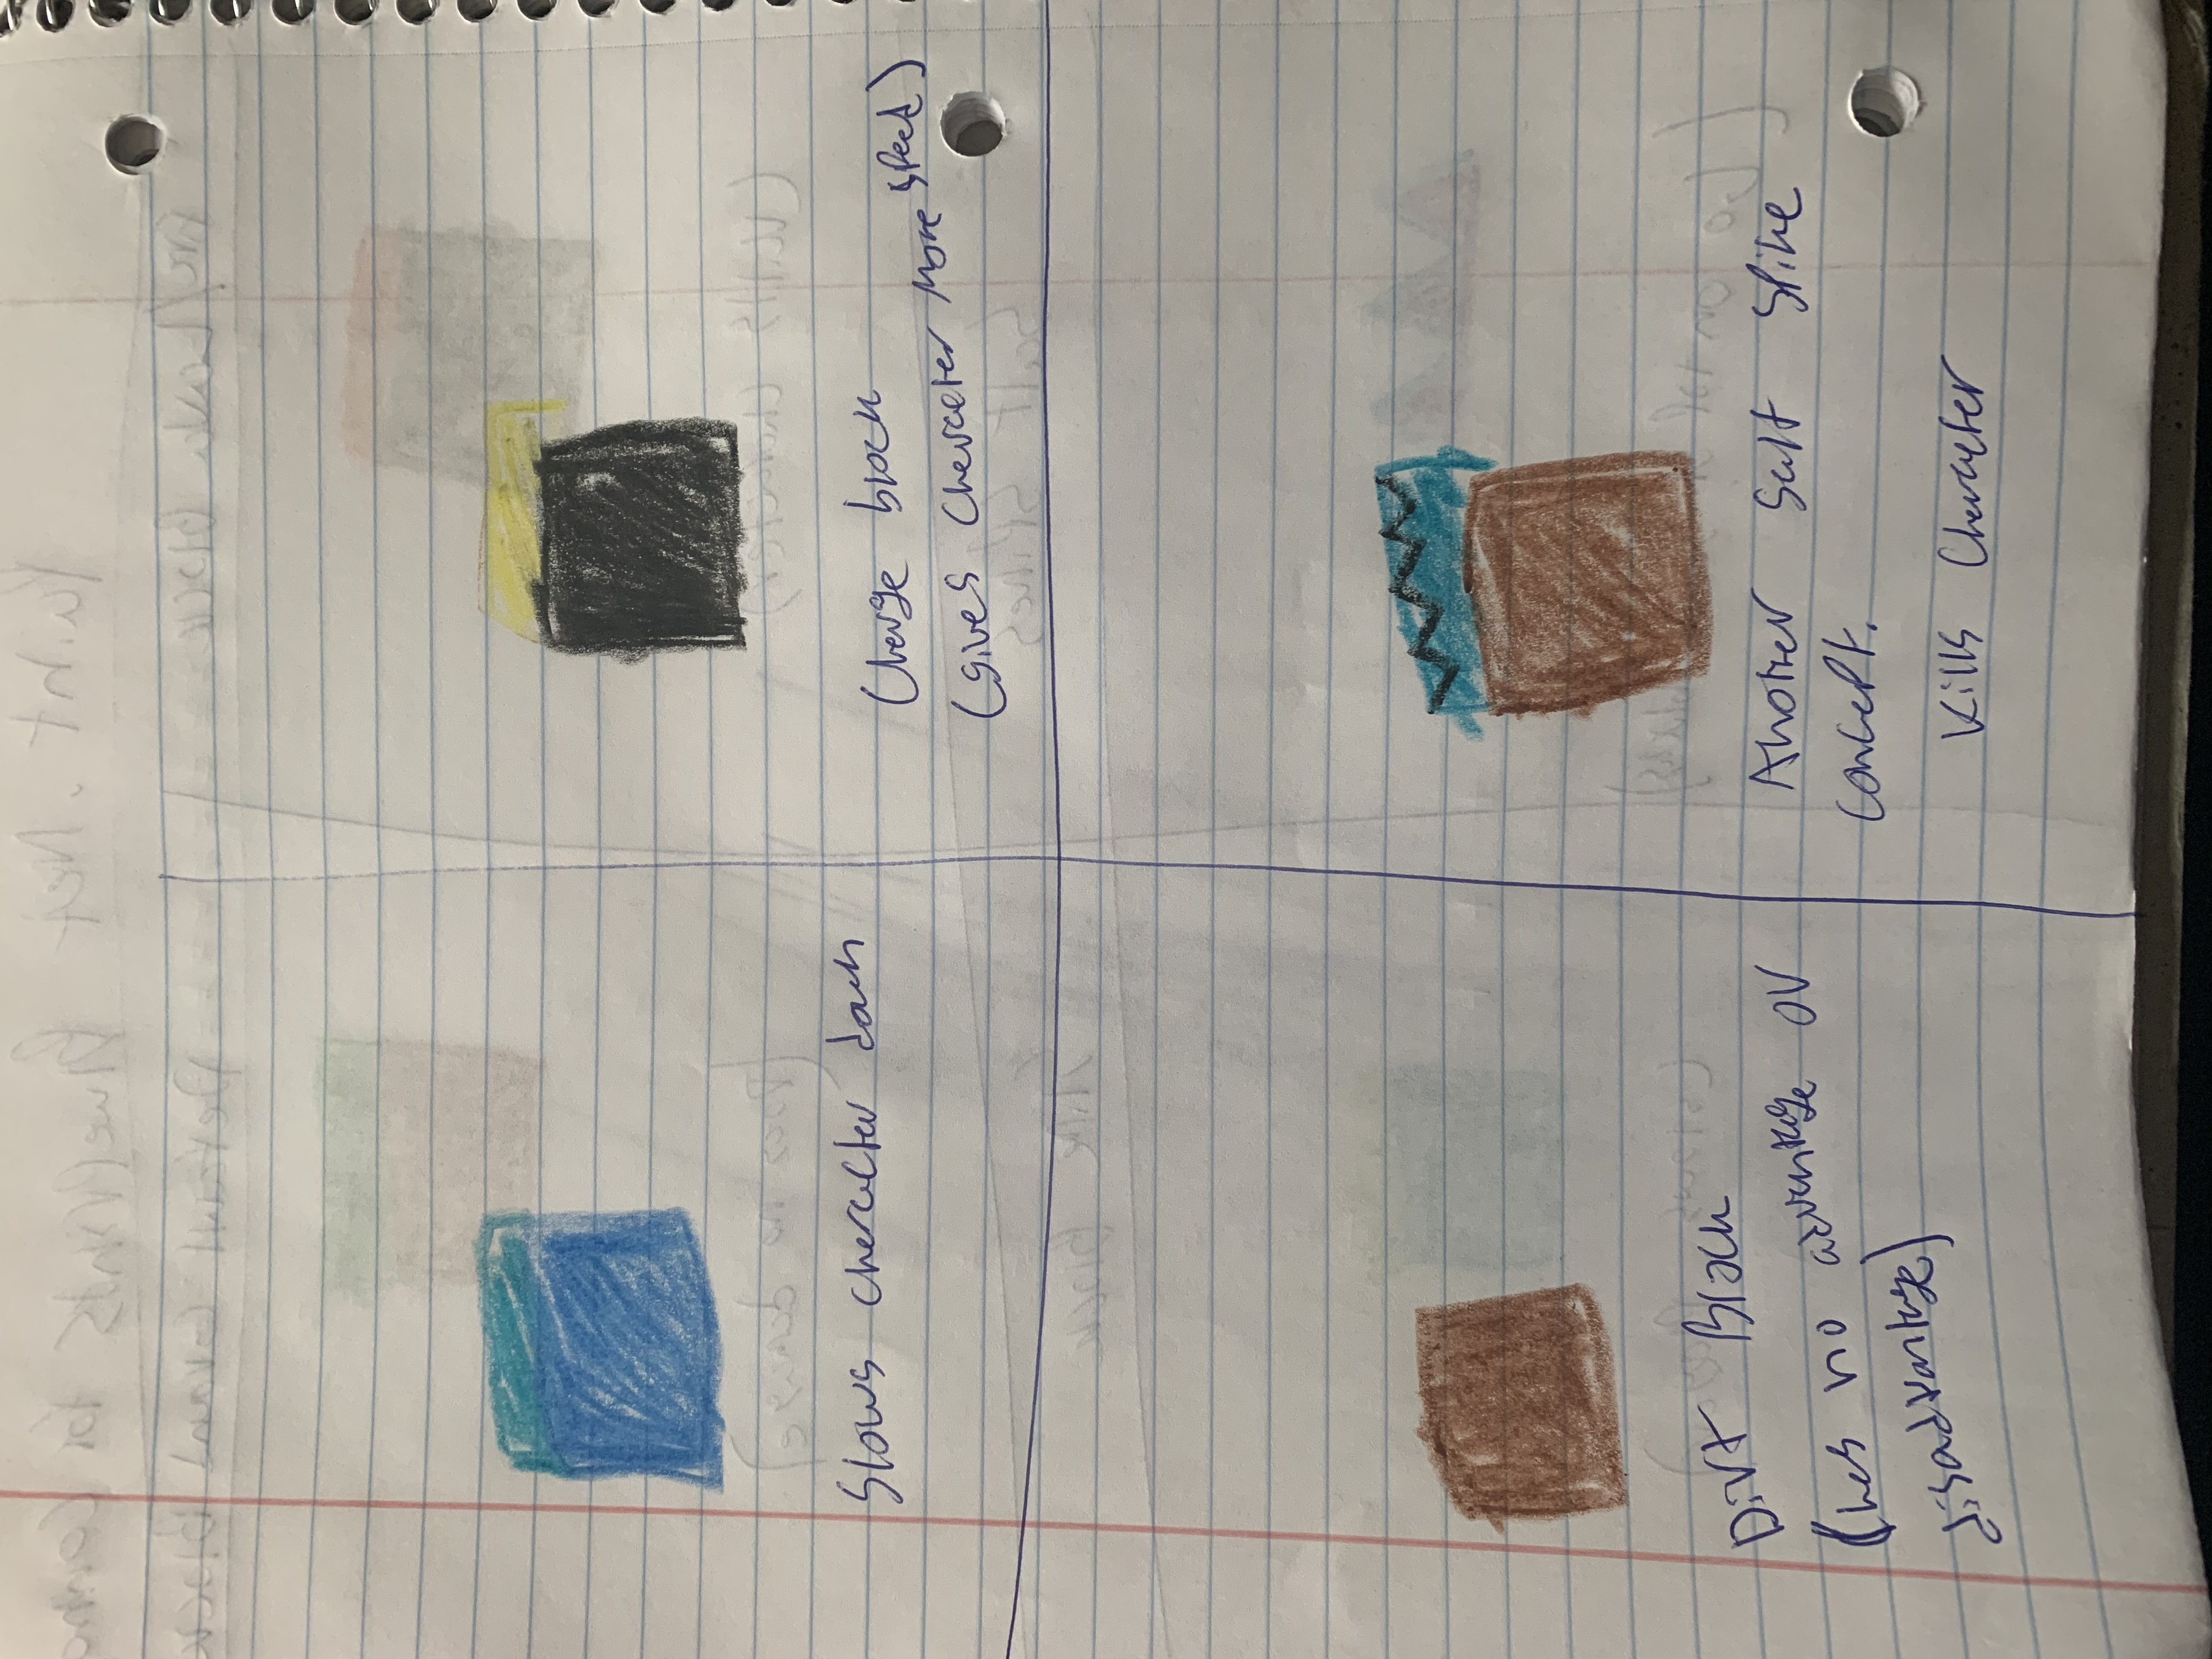 Slows character down
Charge block
(gives Character More speed)
Dirt Block
(has no advantage or
disadvantage)
Another Salt Spike
concept.
Kills Character